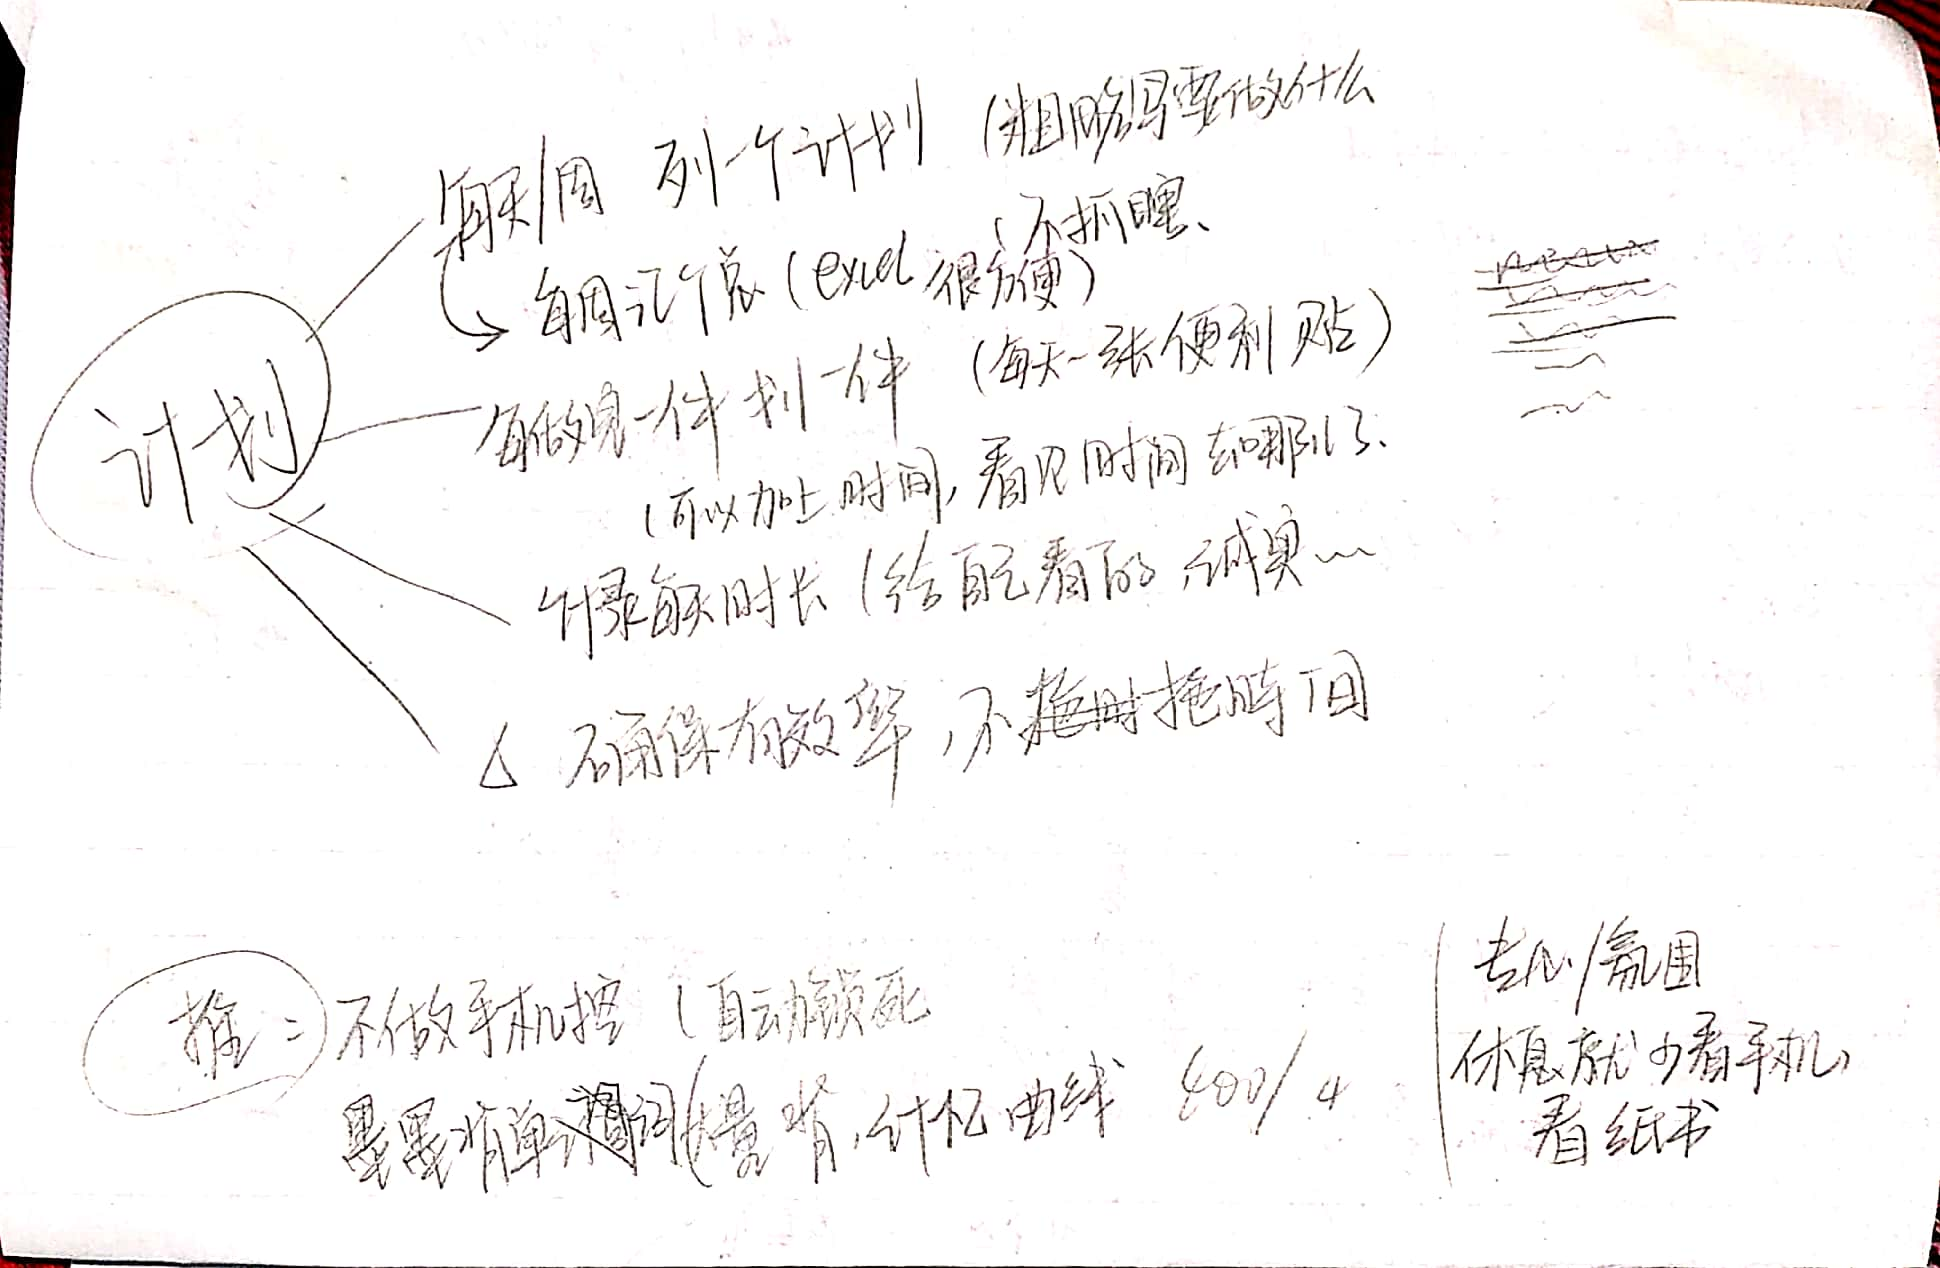 计划
每天/周 列一个计划 (粗略写要做什么
、不抓瞎、
每周汇个总 (excel 很方便)
每做完一件划一件 (每天一张便利贴)
(可以加上时间, 看见时间去哪儿了、
记录每天时长 (给自己看的, 诚实…
△ 确保有效率, 不拖时拖阵时间
推: 不做手机控 (自动锁死
墨墨背单词 (大量背, 记忆曲线 400/4
专心/氛围
休息就少看手机,
看纸书